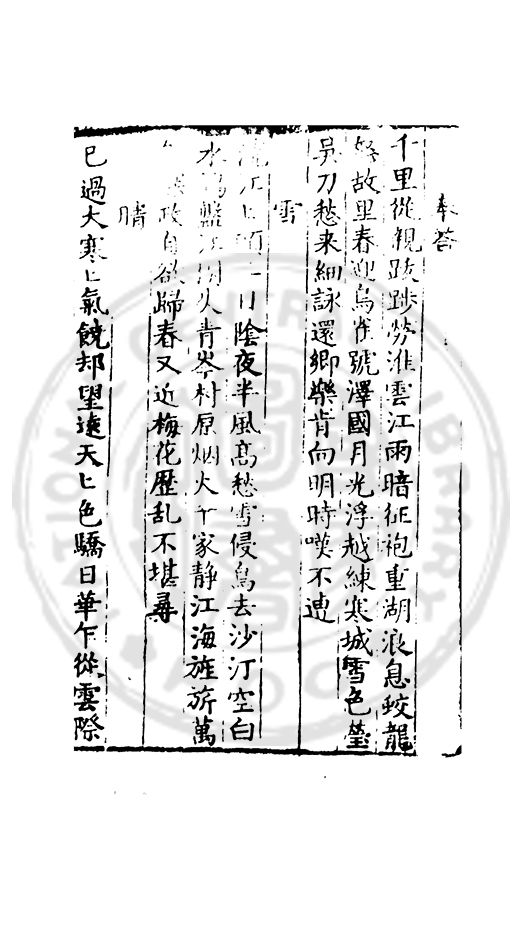 奉答
千里從親跋踄勞淮雲江雨暗征袍重湖浪息蛟龍
怒故里春迎鳥雀號澤國月光浮越練寒城雪色瑩
吳刀愁来細詠還鄉樂肯向明時嘆不遭
雪
江上日陰夜半風高愁雪侵鳥去沙汀空白
水盤江失青岑村原烟火千家静江海旌旂萬
政自欲歸春又近梅花歷乱不堪尋
晴
已過大寒〻氣饒却望遠天〻色驕日華乍從雲際